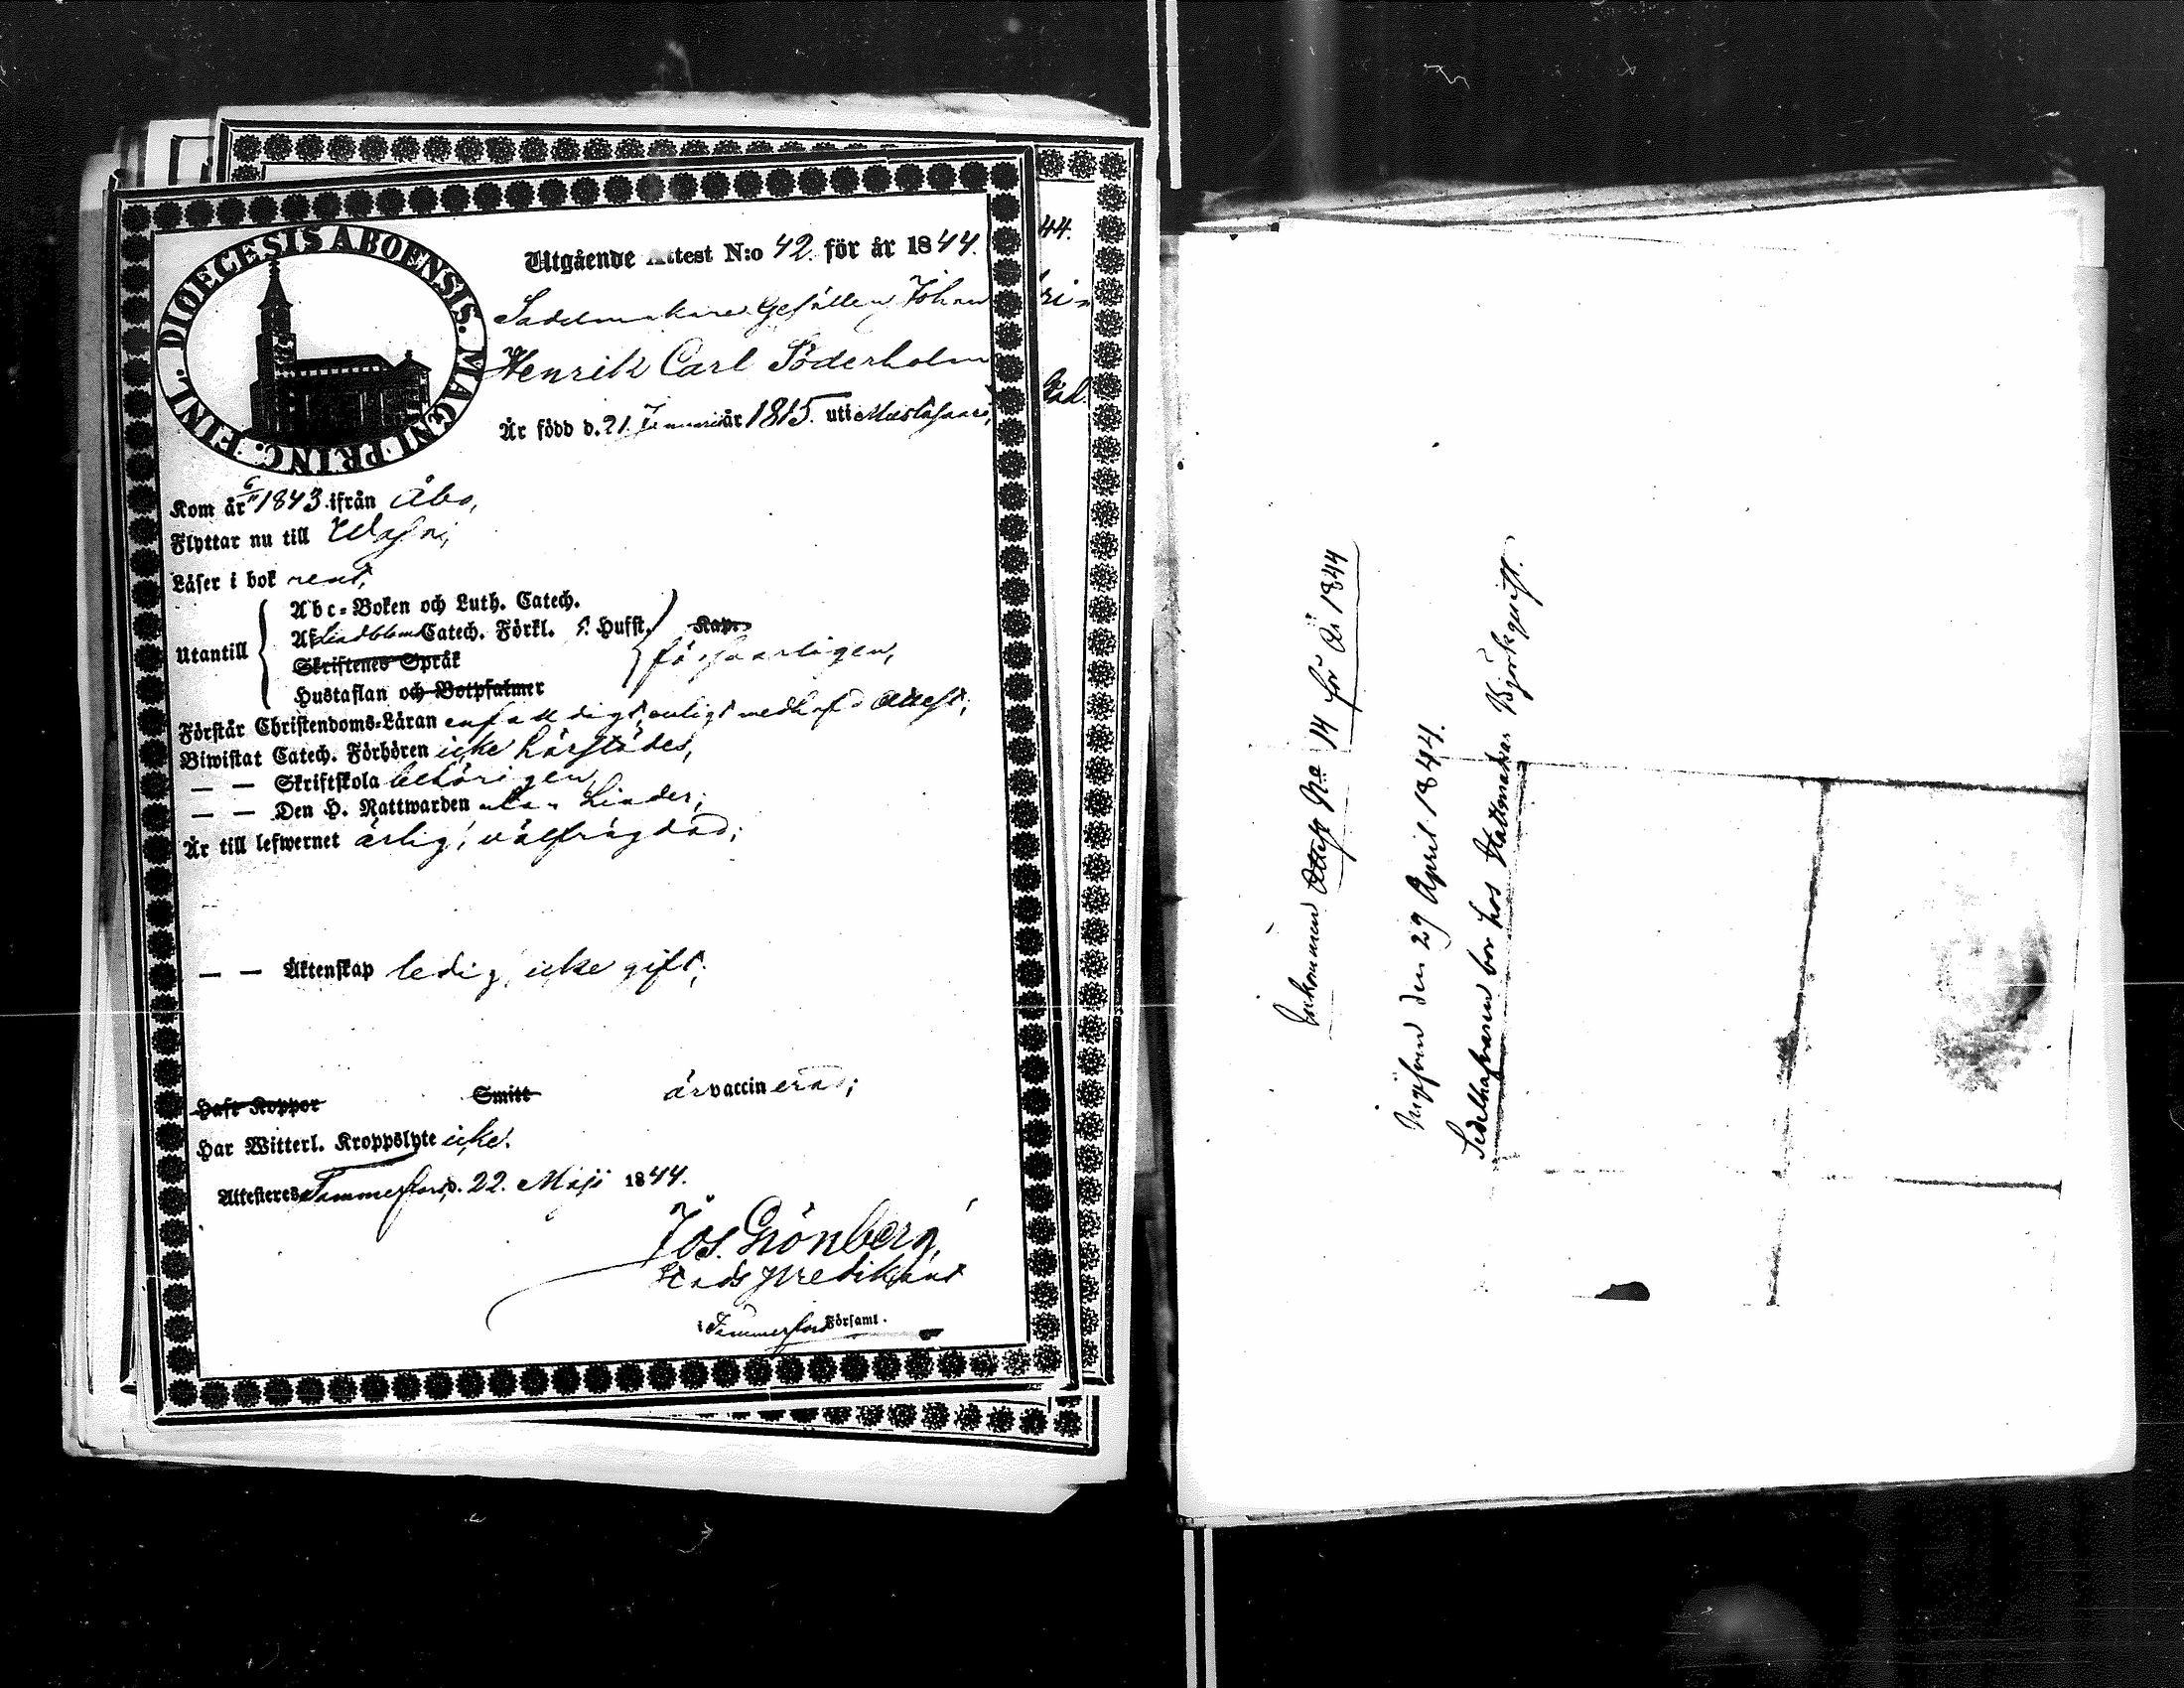 DIOECESIS ABOENSIS. MAGNI PRINC. FINL.
Utgående Attest N:o 42. för år 1844.
Sadelmakare Gesällen Johan
Henrik Carl Söderholm
Är född d. 21. Januarii år 1815. uti Mustasaari,
Kom år 6/11 1843 ifrån Åbo,
Flyttar nu till Wasa,
Läser i bok rent,
Utantill
Abc-Boken och Luth. Catech.
Af Lindbloms Catech. Förkl. s. Hufst. Kap.
Skriftenes Språk
försvarligen,
Hustaflan och Botpsalmer
Förstår Christendoms-Läran enfaldigt, enligt medhafd Attest;
Biwistat Catech. Förhören icke härstädes,
— — Skriftskola behörigen,
— — Den H. Nattwarden utan hinder;
Är till lefwernet ärlig, välfrägdad;
— — Äktenskap ledig, icke gift;
Haft Koppor Smitt är vaccinerad;
Har Witterl. Kroppslyte icke.
Attesteres Tammerfors, d. 22. Maji 1844.
Jos. Grönberg,
Stadspredikant
i Tammerfors Församl.
44.
Inkommen Attest No 14 för År 1844
Uppvist den 29 April 1844.
Sedelhafvaren bor hos Hattmakar Björkqvist.